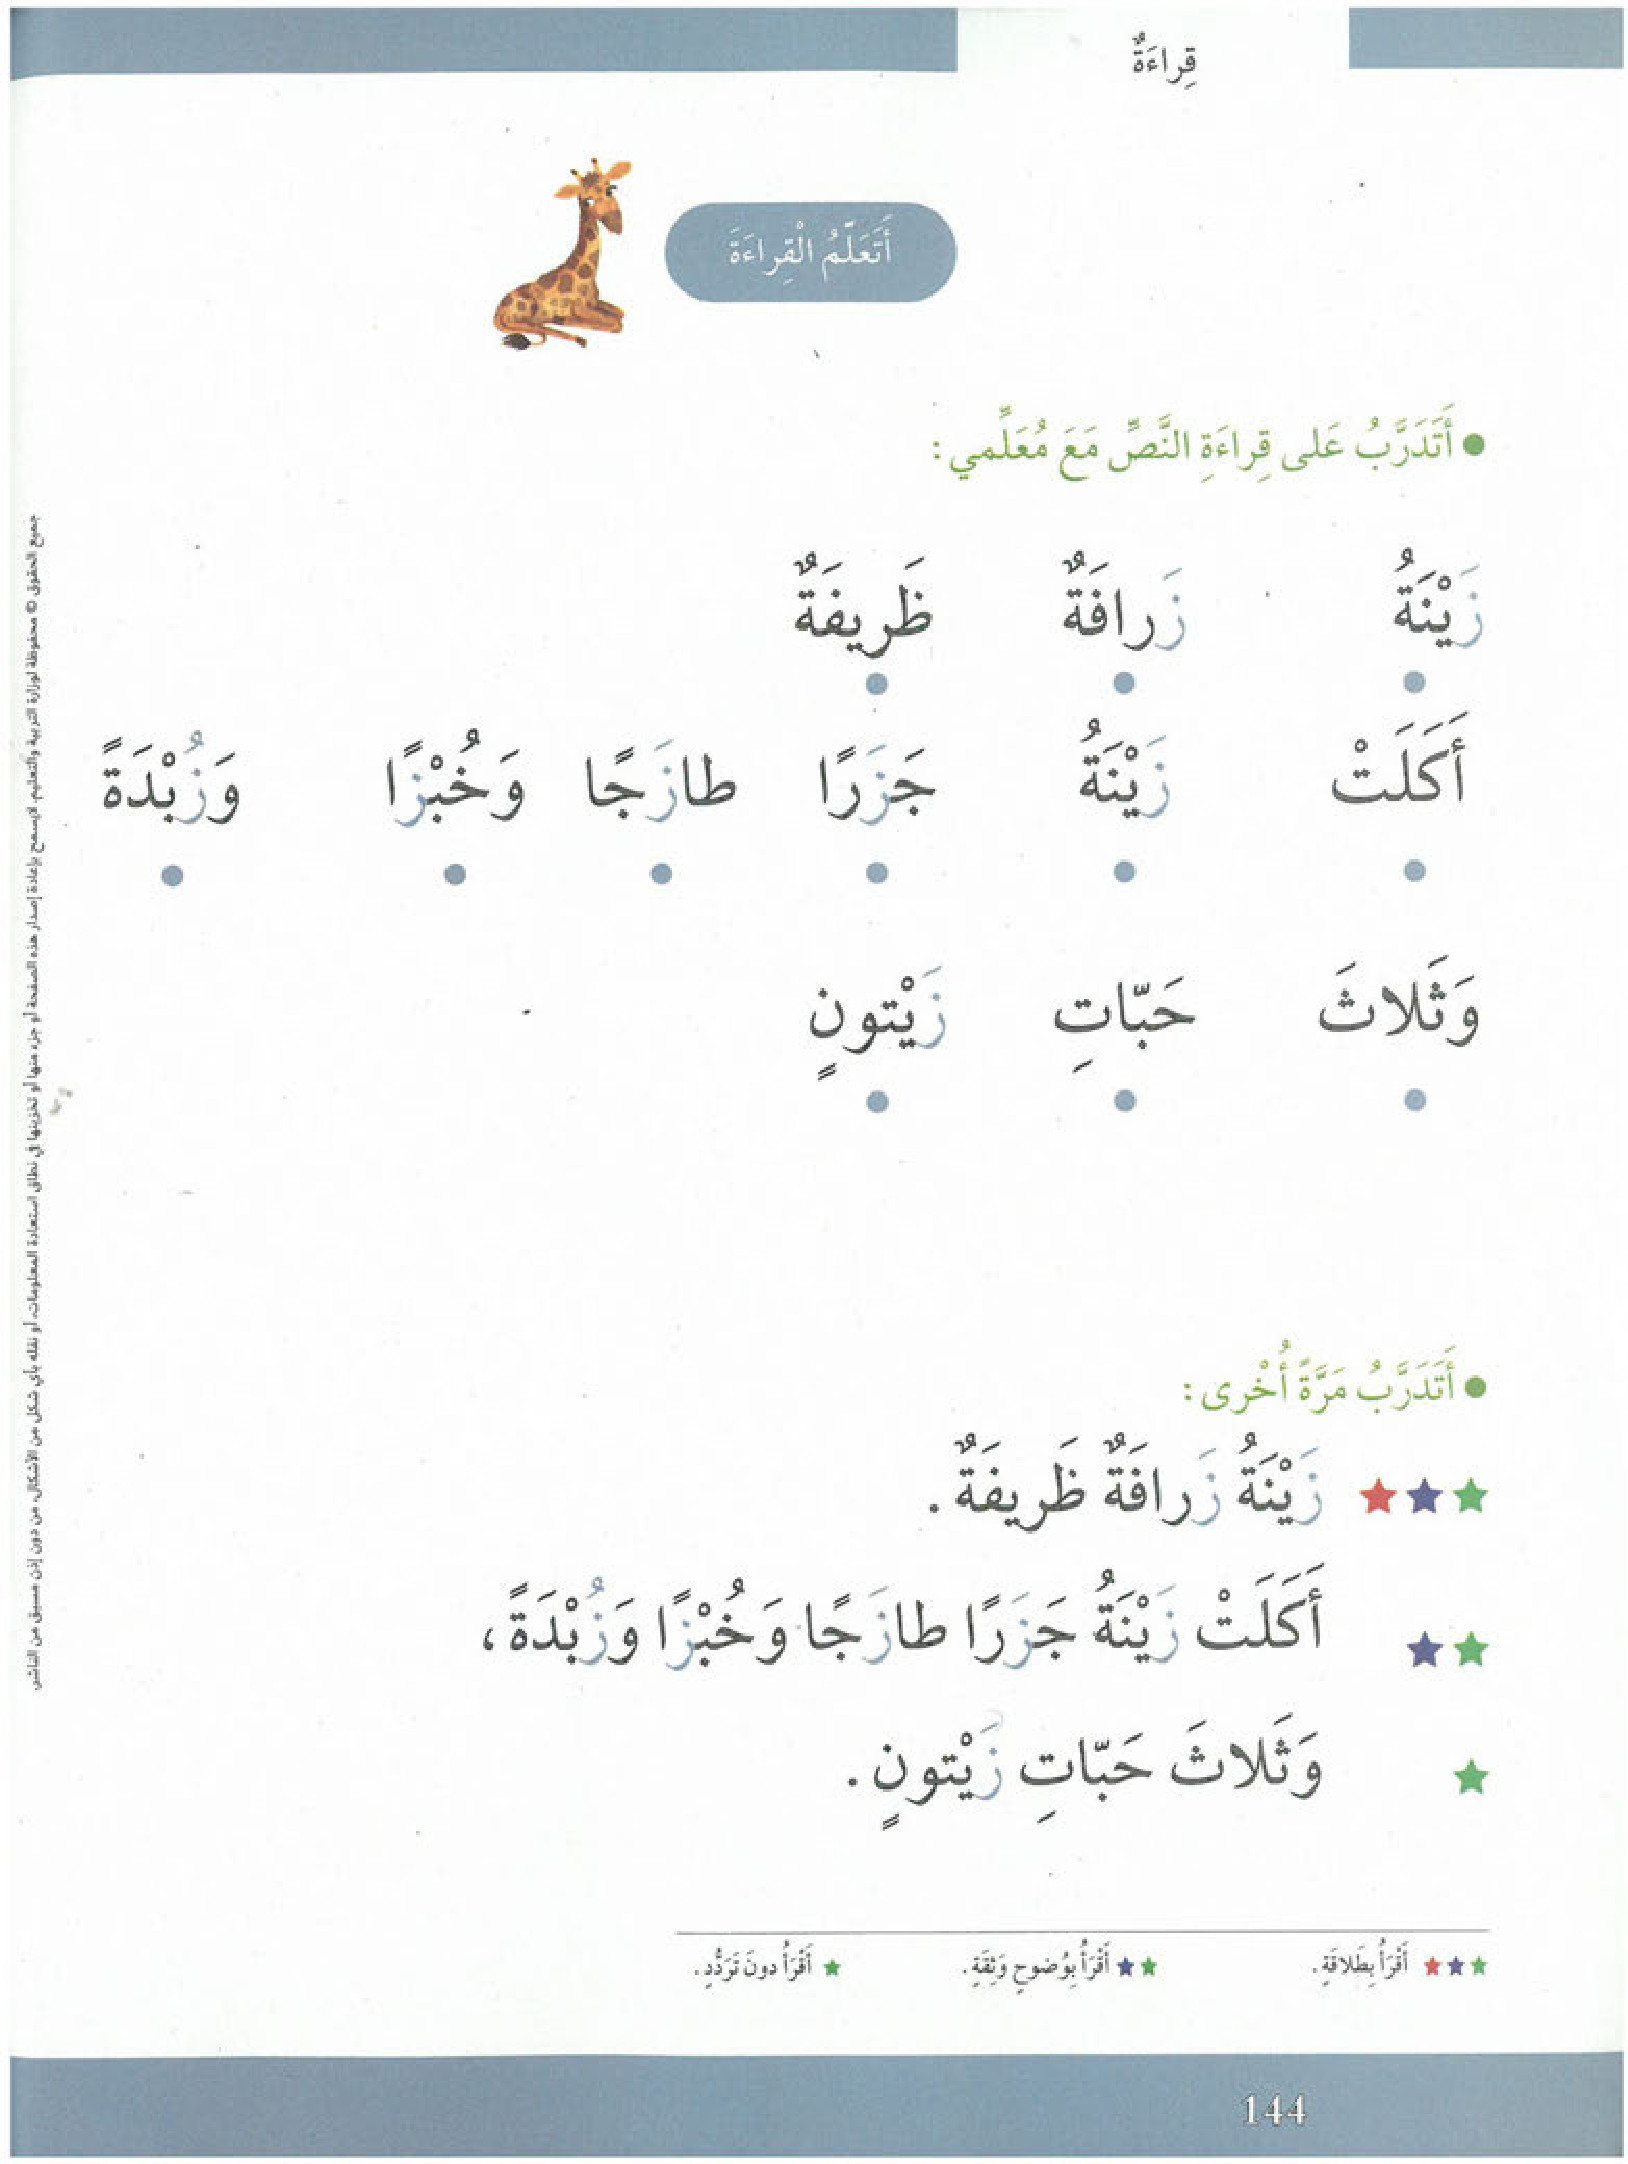 قِراءَةٌ
أَتَعَلَّمُ الْقِراءَةَ
● أَتَدَرَّبُ عَلى قِراءَةِ النَّصِّ مَعَ مُعَلِّمي :
زَيْنَةُ زَرافَةٌ ظَريفَةٌ
أَكَلَتْ زَيْنَةُ جَزَرًا طازَجًا وَخُبْزًا وَزُبْدَةً
وَثَلاثَ حَبّاتِ زَيْتونٍ
● أَتَدَرَّبُ مَرَّةً أُخْرى :
زَيْنَةُ زَرافَةٌ ظَريفَةٌ .
أَكَلَتْ زَيْنَةُ جَزَرًا طازَجًا وَخُبْزًا وَزُبْدَةً ،
وَثَلاثَ حَبّاتِ زَيْتونٍ .
★★★ أَقْرَأُ بِطَلاقَةٍ . ★★ أَقْرَأُ بِوُضوحٍ وَثِقَةٍ . ★ أَقْرَأُ دونَ تَرَدُّدٍ .
144
جميع الحقوق © محفوظة لوزارة التربية والتعليم. لايسمح بإعادة إصدار هذه الصفحة أو جزء منها أو تخزينها في نطاق استعادة المعلومات، أو نقله بأي شكل من الأشكال، من دون إذن مسبق من الناشر